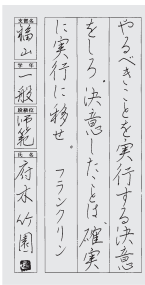 やるべきことを実行する決意
をしろ。決意したことは、確実
に実行に移せ。
フランクリン
支部名
福山
学年
一般
段級位
師範
氏名
府木竹園